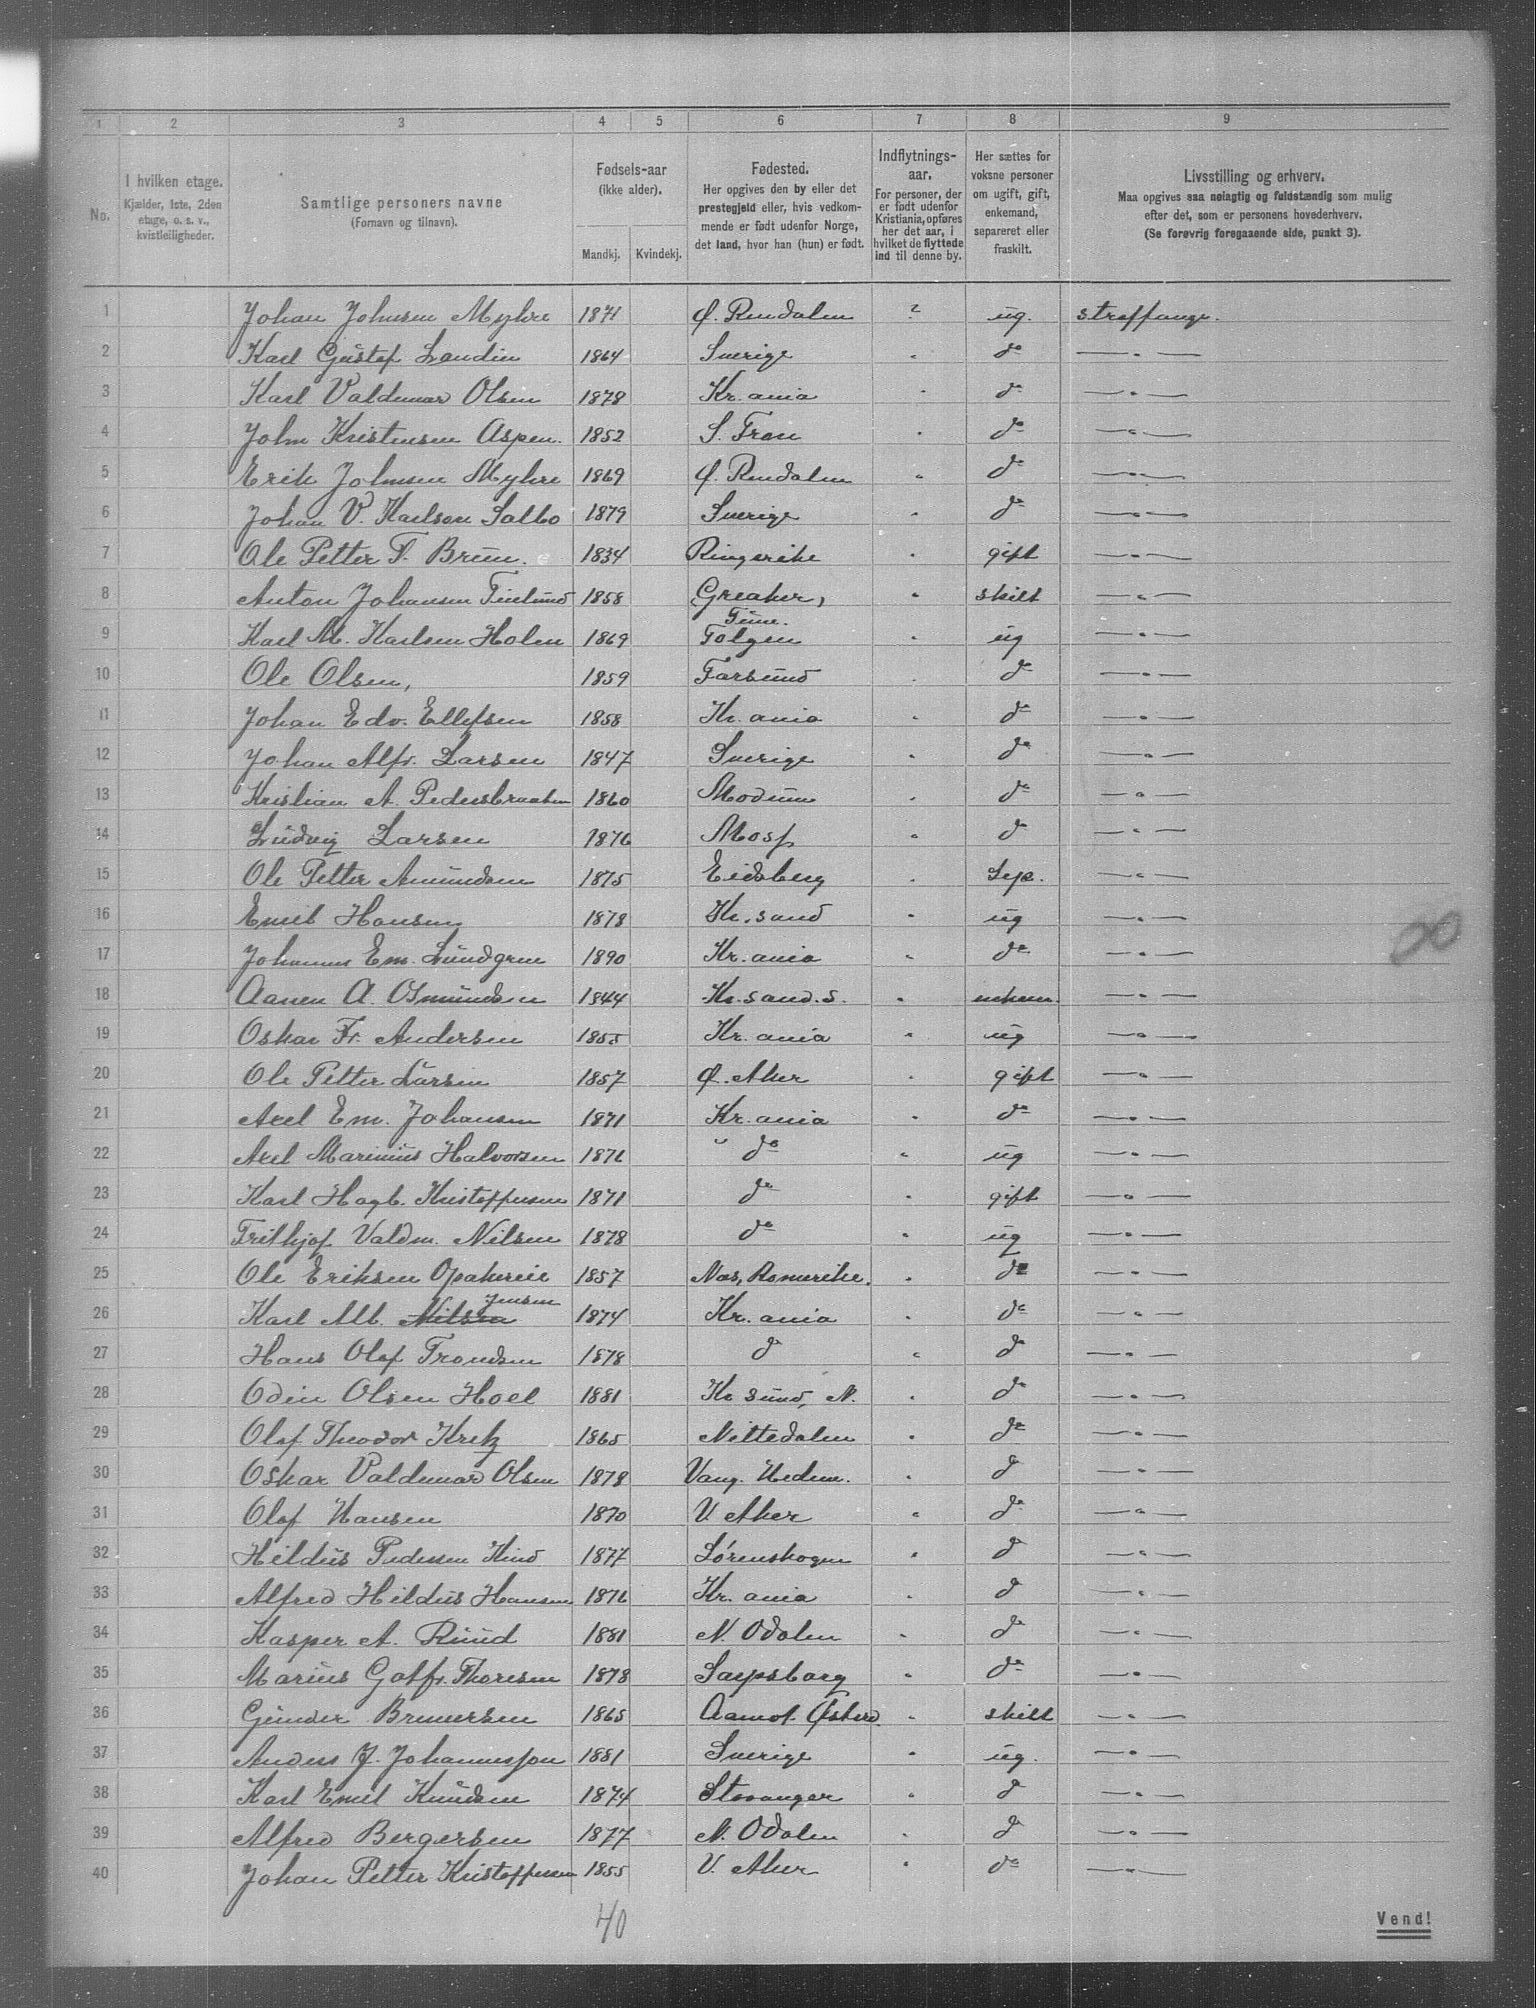 1 2 3 4 5 6 7 8 9
No. I hvilken etage. Kjælder, 1ste, 2den etage, o. s. v., kvistleiligheder.
Samtlige personers navne (Fornavn og tilnavn).
Fødsels-aar (ikke alder). Mandkj. Kvindekj.
Fødested. Her opgives den by eller det prestegjeld eller, hvis vedkommende er født udenfor Norge, det land, hvor han (hun) er født.
Indflytnings-aar. For personer, der er født udenfor Kristiania, opføres her det aar, i hvilket de flyttede ind til denne by.
Her sættes for voksne personer om ugift, gift, enkemand, separeret eller fraskilt.
Livsstilling og erhverv. Maa opgives saa nøiagtig og fuldstændig som mulig efter det, som er personens hovederhverv. (Se forøvrig foregaaende side, punkt 3).
1 Johan Johnsen Myhre 1871 Ø. Rendalen ? ug. straffange.
2 Karl Gustaf Landin 1864 Sverige " do —"—
3 Karl Valdemar Olsen 1878 Kr.ania " do —"—
4 John Kristensen Aspen. 1852 S. Fron " do —"—
5 Erik Johnsen Myhre 1869 Ø. Rendalen " do —"—
6 Johan V. Karlson Salbo 1879 Sverige " do —"—
7 Ole Petter T. Bruun. 1834 Ringerike " gift —"—
8 Anton Johansen 1858 Greaker, Tune. " skilt —"—
9 Karl M. Karlsen Holen 1869 Tolgen " ug —"—
10 Ole Olsen, 1859 Farsund " do —"—
11 Johan Edv. Ellefsen 1858 Kr.ania " do —"—
12 Johan Alfr. Larsen 1847 Sverige " do —"—
13 Kristian A. Pedersbraaten 1860 Modum " do —"—
14 Ludvig Larsen 1876 Moss " do —"—
15 Ole Petter Amundsen 1875 Eidsberg " Sep. —"—
16 Emil Hansen 1878 Kr.sand " ug —"—
17 Johannes Em. Lundgren 1890 Kr.ania " do —"—
18 Aanen A. Osmundsen 1844 Kr.sand.S. " enkem. —"—
19 Oskar Fr. Andersen 1855 Kr.ania " ug —"—
20 Ole Petter Larsen 1857 Ø. Aker " gift —"—
21 Axel Em. Johansen 1871 Kr.ania " do —"—
22 Axel Marinius Halvorsen 1876 " do " ug —"—
23 Karl Hagb. Kristoffersen 1871 do " gift —"—
24 Frithjof Valdm. Nilsen 1878 do " ug —"—
25 Ole Eriksen Opakereie 1857 Nas, Romerike. " do —"—
26 Karl Alb. Nilsen Jensen 1874 Kr.ania " do —"—
27 Hans Olaf Trondsen 1878 do " do —"—
28 Odin Olsen Hoel 1881 Kr sund, N. " do —"—
29 Olaf Theodor Kretz 1865 Nittedalen " do —"—
30 Oskar Valdemar Olsen 1878 Vang. Hedem. " do —"—
31 Olaf Hansen 1870 V. Aker " do —"—
32 Hildus Pedersen Kind 1877 Lørenskogen " do —"—
33 Alfred Hildus Hansen 1876 Kr. ania " do —"—
34 Kasper A. Ruud 1881 N. Odalen " do —"—
35 Marius Gotfr. Thoresen 1878 Sarpsborg " do —"—
36 Gunder Brunersen 1865 Aamot. Østerd. " skilt —"—
37 Anders J. Johannesson 1881 Sverige " ug. —"—
38 Karl Emil Knudsen 1874 Stavanger " do —"—
39 Alfred Bergersen 1877 N. Odalen " do —"—
40 Johan Petter Kristoffersen 1855 V. Aker " do —"—
40
Vend!